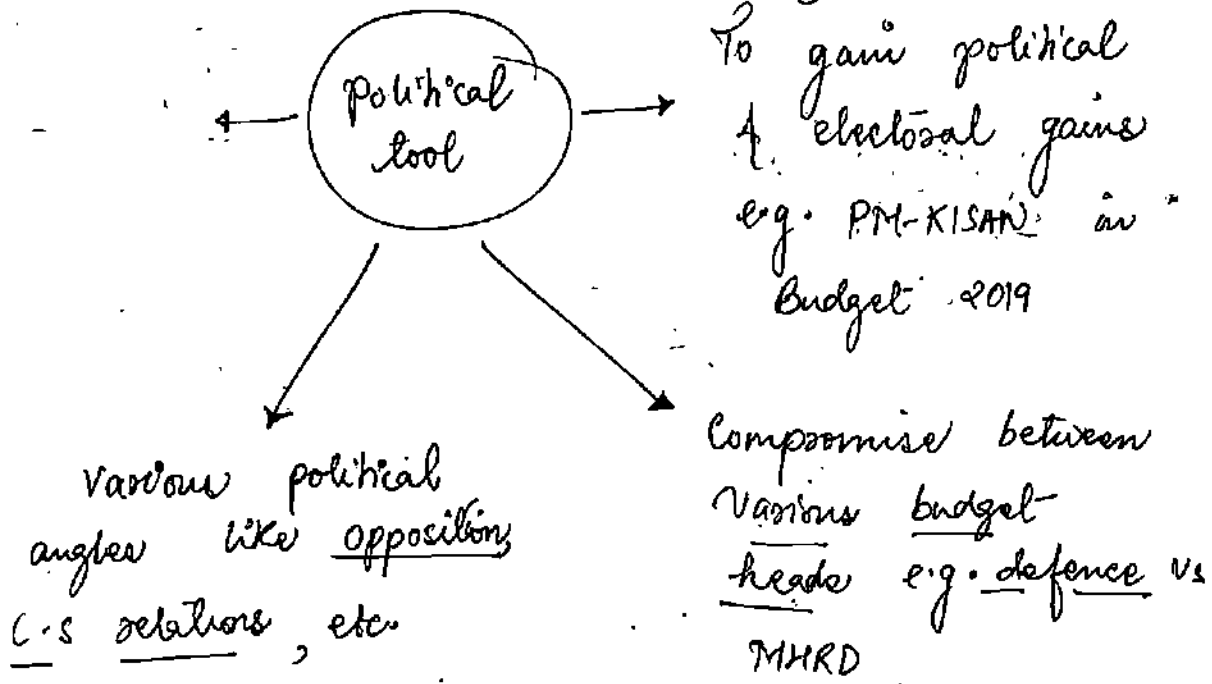 Political
tool
To gain political
& electoral gains
e.g. PM-KISAN in
Budget 2019
Various political
angles like opposition,
C-S relations, etc.
Compromise between
Various budget
heads e.g. defence vs
MHRD